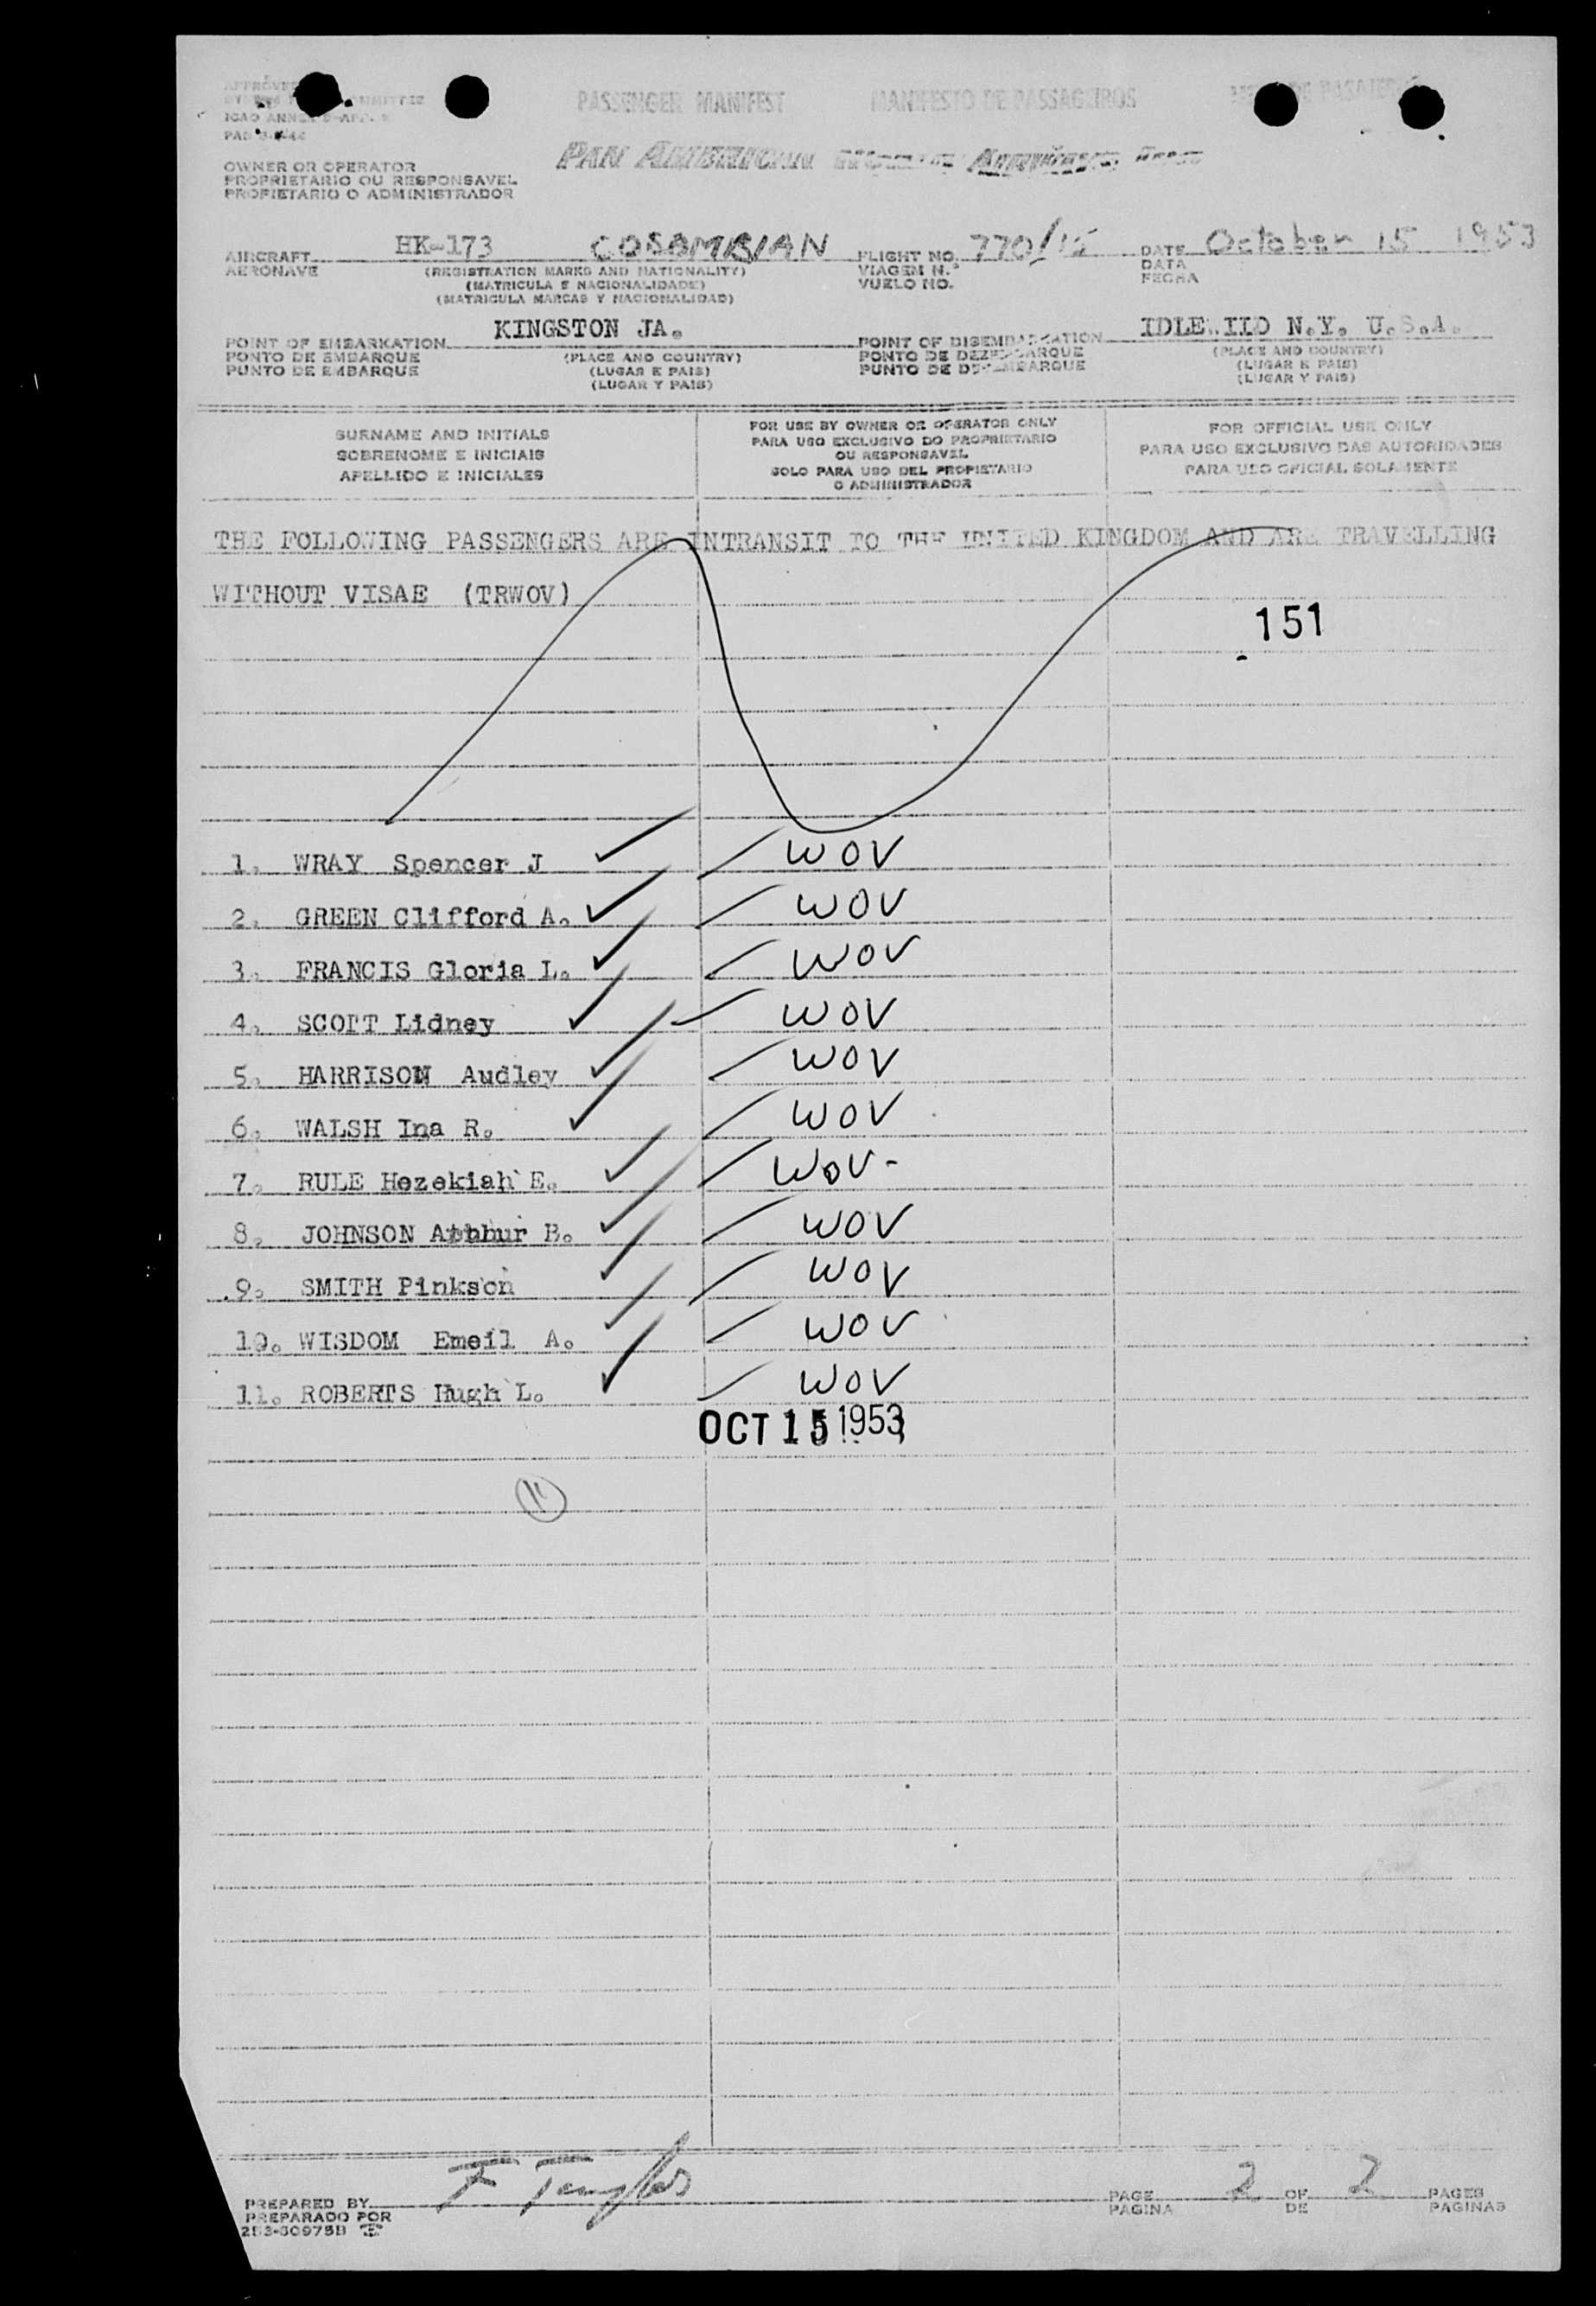 PASSENGER MANIFEST MANIFESTO DE PASSAGEIROS
PAN AMERICAN
OWNER OR OPERATOR
PROPRIETARIO OU RESPONSAVEL
PROPIETARIO O ADMINISTRADOR
AIRCRAFT HK-173 COLOMBIAN FLIGHT NO. 770/15 DATE October 15 1953
AERONAVE (REGISTRATION MARKS AND NATIONALITY) VIAGEM N.º DATA
(MATRICULA E NACIONALIDADE) VUELO NO. FECHA
(MATRICULA MARCAS Y NACIONALIDAD)
POINT OF EMBARKATION KINGSTON JA. POINT OF DISEMBARKATION IDLEWILD N.Y. U.S.A.
PONTO DE EMBARQUE (PLACE AND COUNTRY) PONTO DE DEZEMBARQUE (PLACE AND COUNTRY)
PUNTO DE EMBARQUE (LUGAR E PAIS) PUNTO DE DESEMBARQUE (LUGAR E PAIS)
(LUGAR Y PAIS) (LUGAR Y PAIS)
SURNAME AND INITIALS
SOBRENOME E INICIAIS
APELLIDO E INICIALES
FOR USE BY OWNER OR OPERATOR ONLY
PARA USO EXCLUSIVO DO PROPRIETARIO
OU RESPONSAVEL
SOLO PARA USO DEL PROPIETARIO
O ADMINISTRADOR
FOR OFFICIAL USE ONLY
PARA USO EXCLUSIVO DAS AUTORIDADES
PARA USO OFICIAL SOLAMENTE
THE FOLLOWING PASSENGERS ARE INTRANSIT TO THE UNITED KINGDOM AND ARE TRAVELLING
WITHOUT VISAE (TRWOV)
151
1. WRAY Spencer J WOV
2. GREEN Clifford A. WOV
3. FRANCIS Gloria L. WOV
4. SCOTT Lidney WOV
5. HARRISON Audley WOV
6. WALSH Ina R. WOV
7. RULE Hezekiah E. WOV-
8. JOHNSON Arthur B. WOV
9. SMITH Pinkson WOV
10. WISDOM Emeil A. WOV
11. ROBERTS Hugh L. WOV
OCT 15 1953
11
PREPARED BY PAGE 2 OF 2 PAGES
PREPARADO POR PAGINA DE PAGINAS